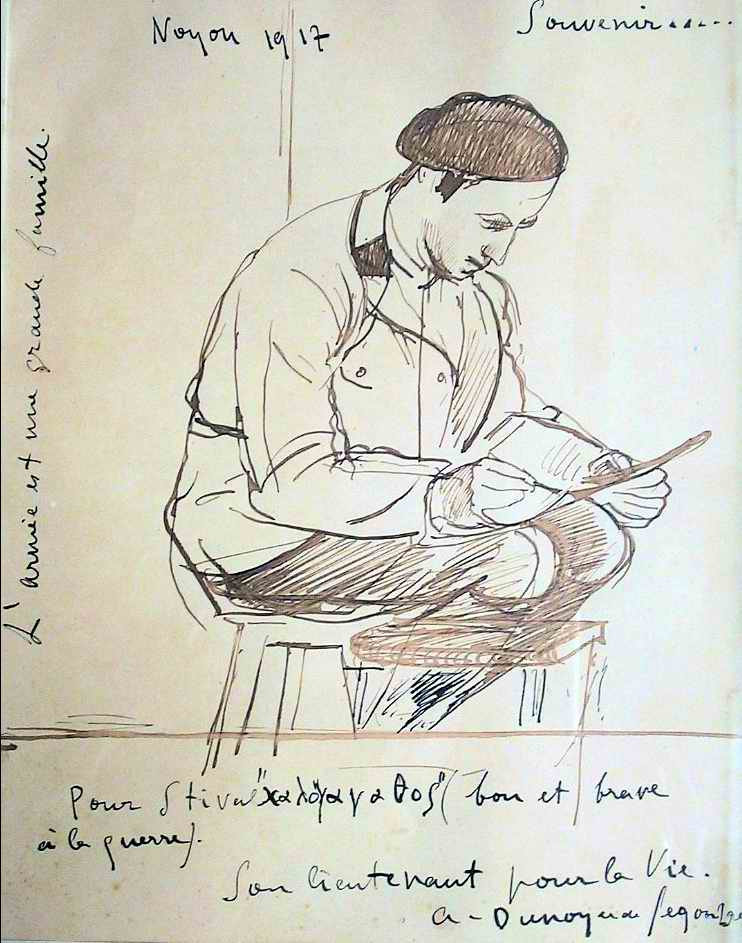 Noyon 1917
Souvenir.....
L'armée est une grande famille.
Pour Stival "χαλόγαγαθος" ( bon et brave
à la guerre).
Son lieutenant pour la Vie.
A - Dunoyer de Segonzac